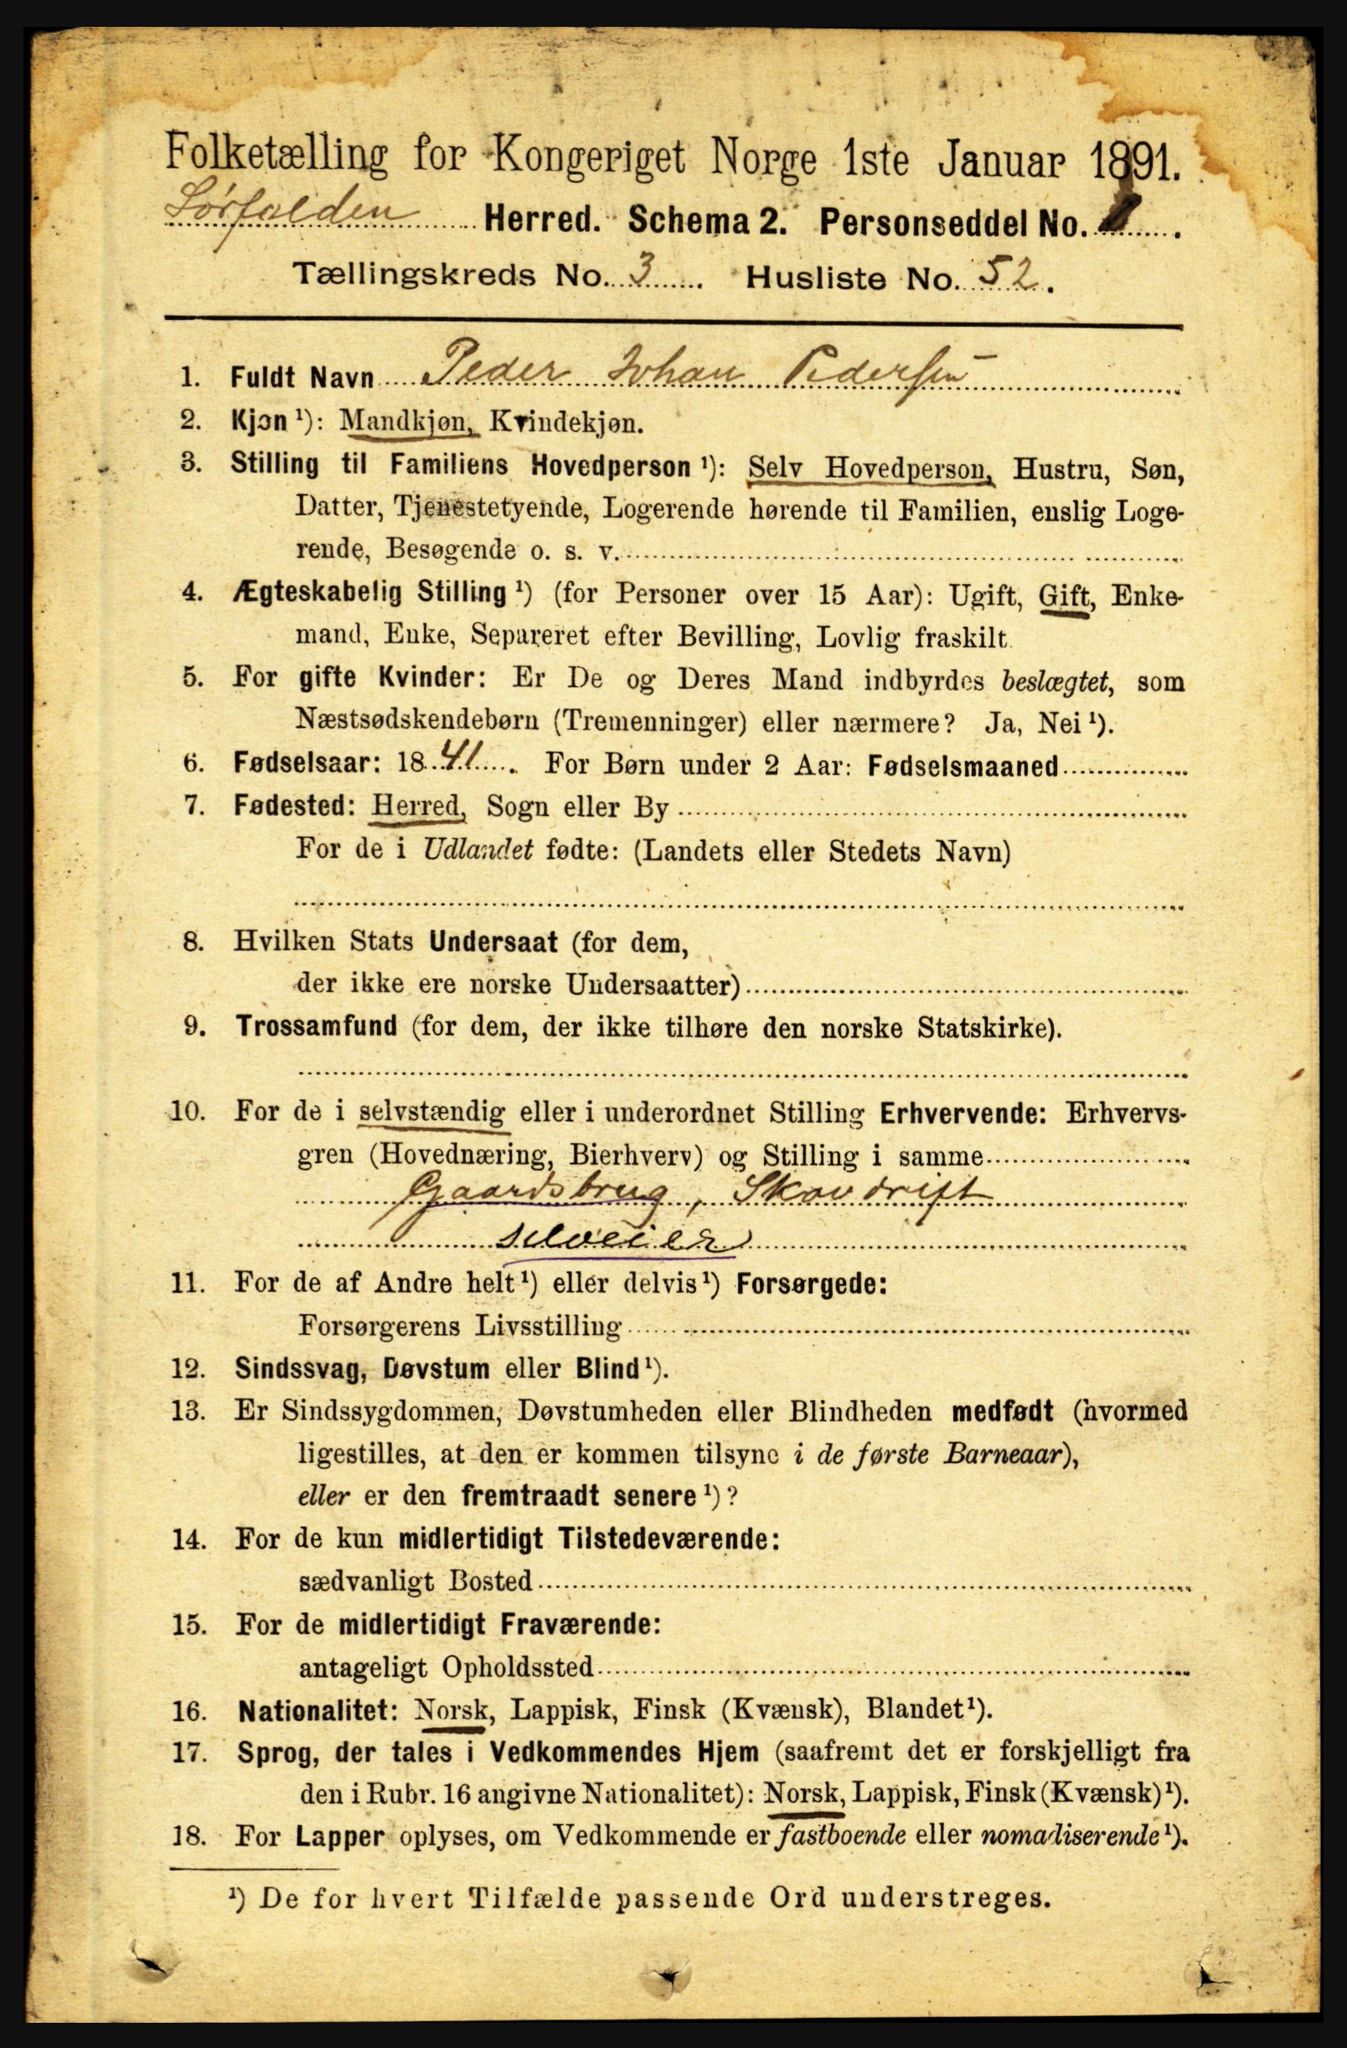 Folketælling for Kongeriget Norge 1ste Januar 1891.
Sørfolden Herred. Schema 2. Personseddel No. 1.
Tællingskreds No. 3. Husliste No. 52.
1. Fuldt Navn Peder Johan Pedersen
2. Kjøn¹): Mandkjøn, Kvindekjøn.
3. Stilling til Familiens Hovedperson¹): Selv Hovedperson, Hustru, Søn,
Datter, Tjenestetyende, Logerende hørende til Familien, enslig Loge-
rende, Besøgende o. s. v.
4. Ægteskabelig Stilling¹) (for Personer over 15 Aar): Ugift, Gift, Enke-
mand, Enke, Separeret efter Bevilling, Lovlig fraskilt.
5. For gifte Kvinder: Er De og Deres Mand indbyrdes beslægtet, som
Næstsødskendebørn (Tremenninger) eller nærmere? Ja, Nei¹).
6. Fødselsaar: 1841. For Børn under 2 Aar: Fødselsmaaned
7. Fødested: Herred, Sogn eller By
For de i Udlandet fødte: (Landets eller Stedets Navn)
8. Hvilken Stats Undersaat (for dem,
der ikke ere norske Undersaatter)
9. Trossamfund (for dem, der ikke tilhøre den norske Statskirke).
10. For de i selvstændig eller i underordnet Stilling Erhvervende: Erhvervs-
gren (Hovednæring, Bierhverv) og Stilling i samme
Gaardsbrug, Skovdrift
selveier
11. For de af Andre helt¹) eller delvis¹) Forsørgede:
Forsørgerens Livsstilling
12. Sindssvag, Døvstum eller Blind¹).
13. Er Sindssygdommen, Døvstumheden eller Blindheden medfødt (hvormed
ligestilles, at den er kommen tilsyne i de første Barneaar),
eller er den fremtraadt senere¹)?
14. For de kun midlertidigt Tilstedeværende:
sædvanligt Bosted
15. For de midlertidigt Fraværende:
antageligt Opholdssted
16. Nationalitet: Norsk, Lappisk, Finsk (Kvænsk), Blandet¹).
17. Sprog, der tales i Vedkommendes Hjem (saafremt det er forskjelligt fra
den i Rubr. 16 angivne Nationalitet): Norsk, Lappisk, Finsk (Kvænsk)¹).
18. For Lapper oplyses, om Vedkommende er fastboende eller nomadiserende¹).
¹) De for hvert Tilfælde passende Ord understreges.